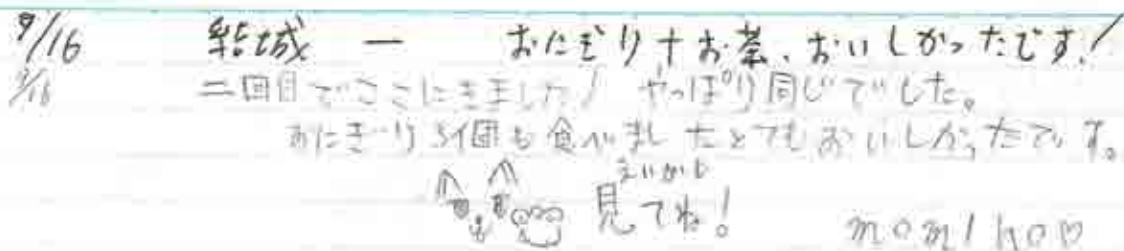 9/16 結城 ー おにぎり+お茶、おいしかったです!
9/16 二回目でここにきました! やっぱり同じででした。
おにぎーり3個も食べましたとてもおいしかったです。
えいがし
見てね!
momiho♡